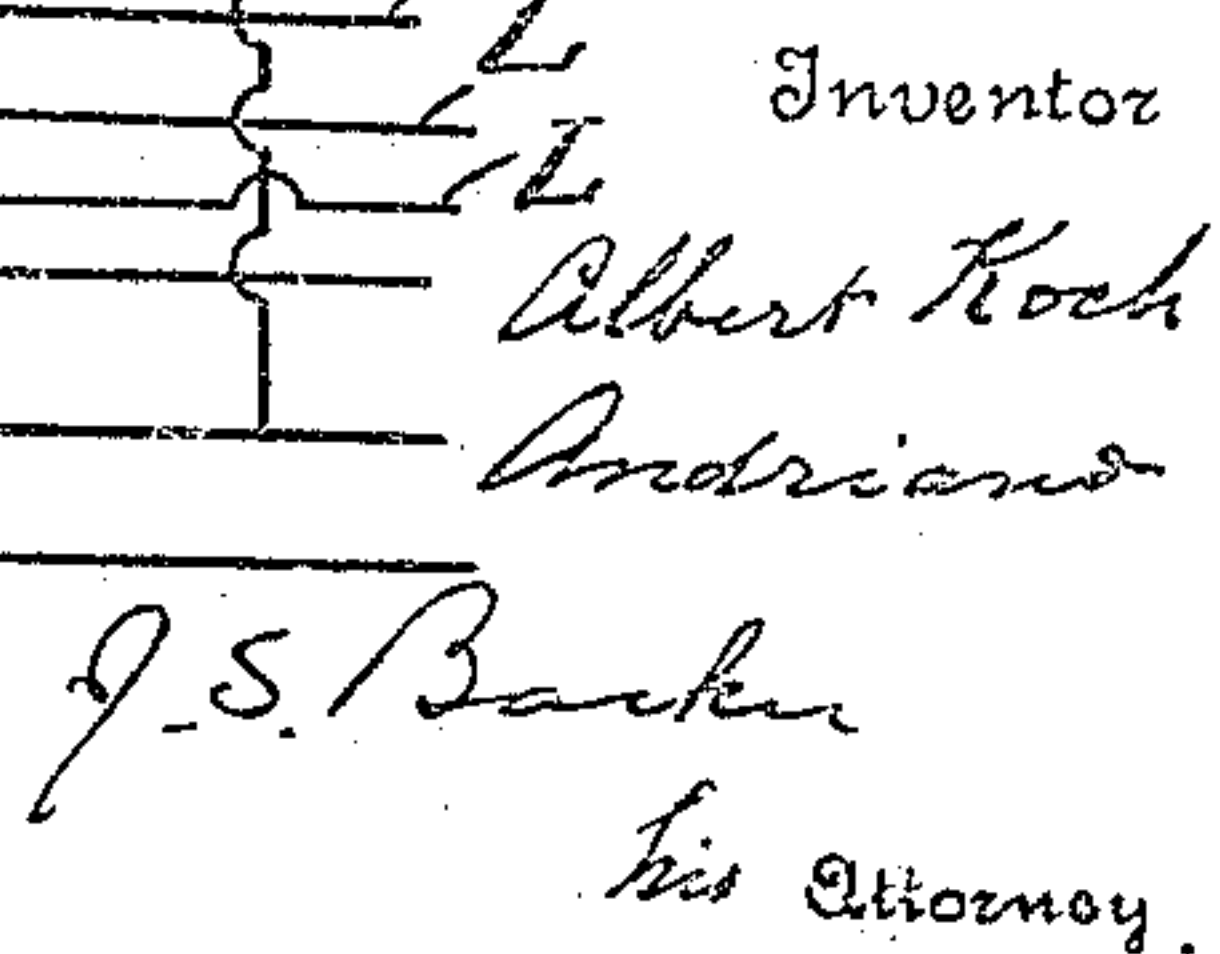 L
Inventor
L
Albert Koch
Andriano
J. S. Barker
his Attorney.